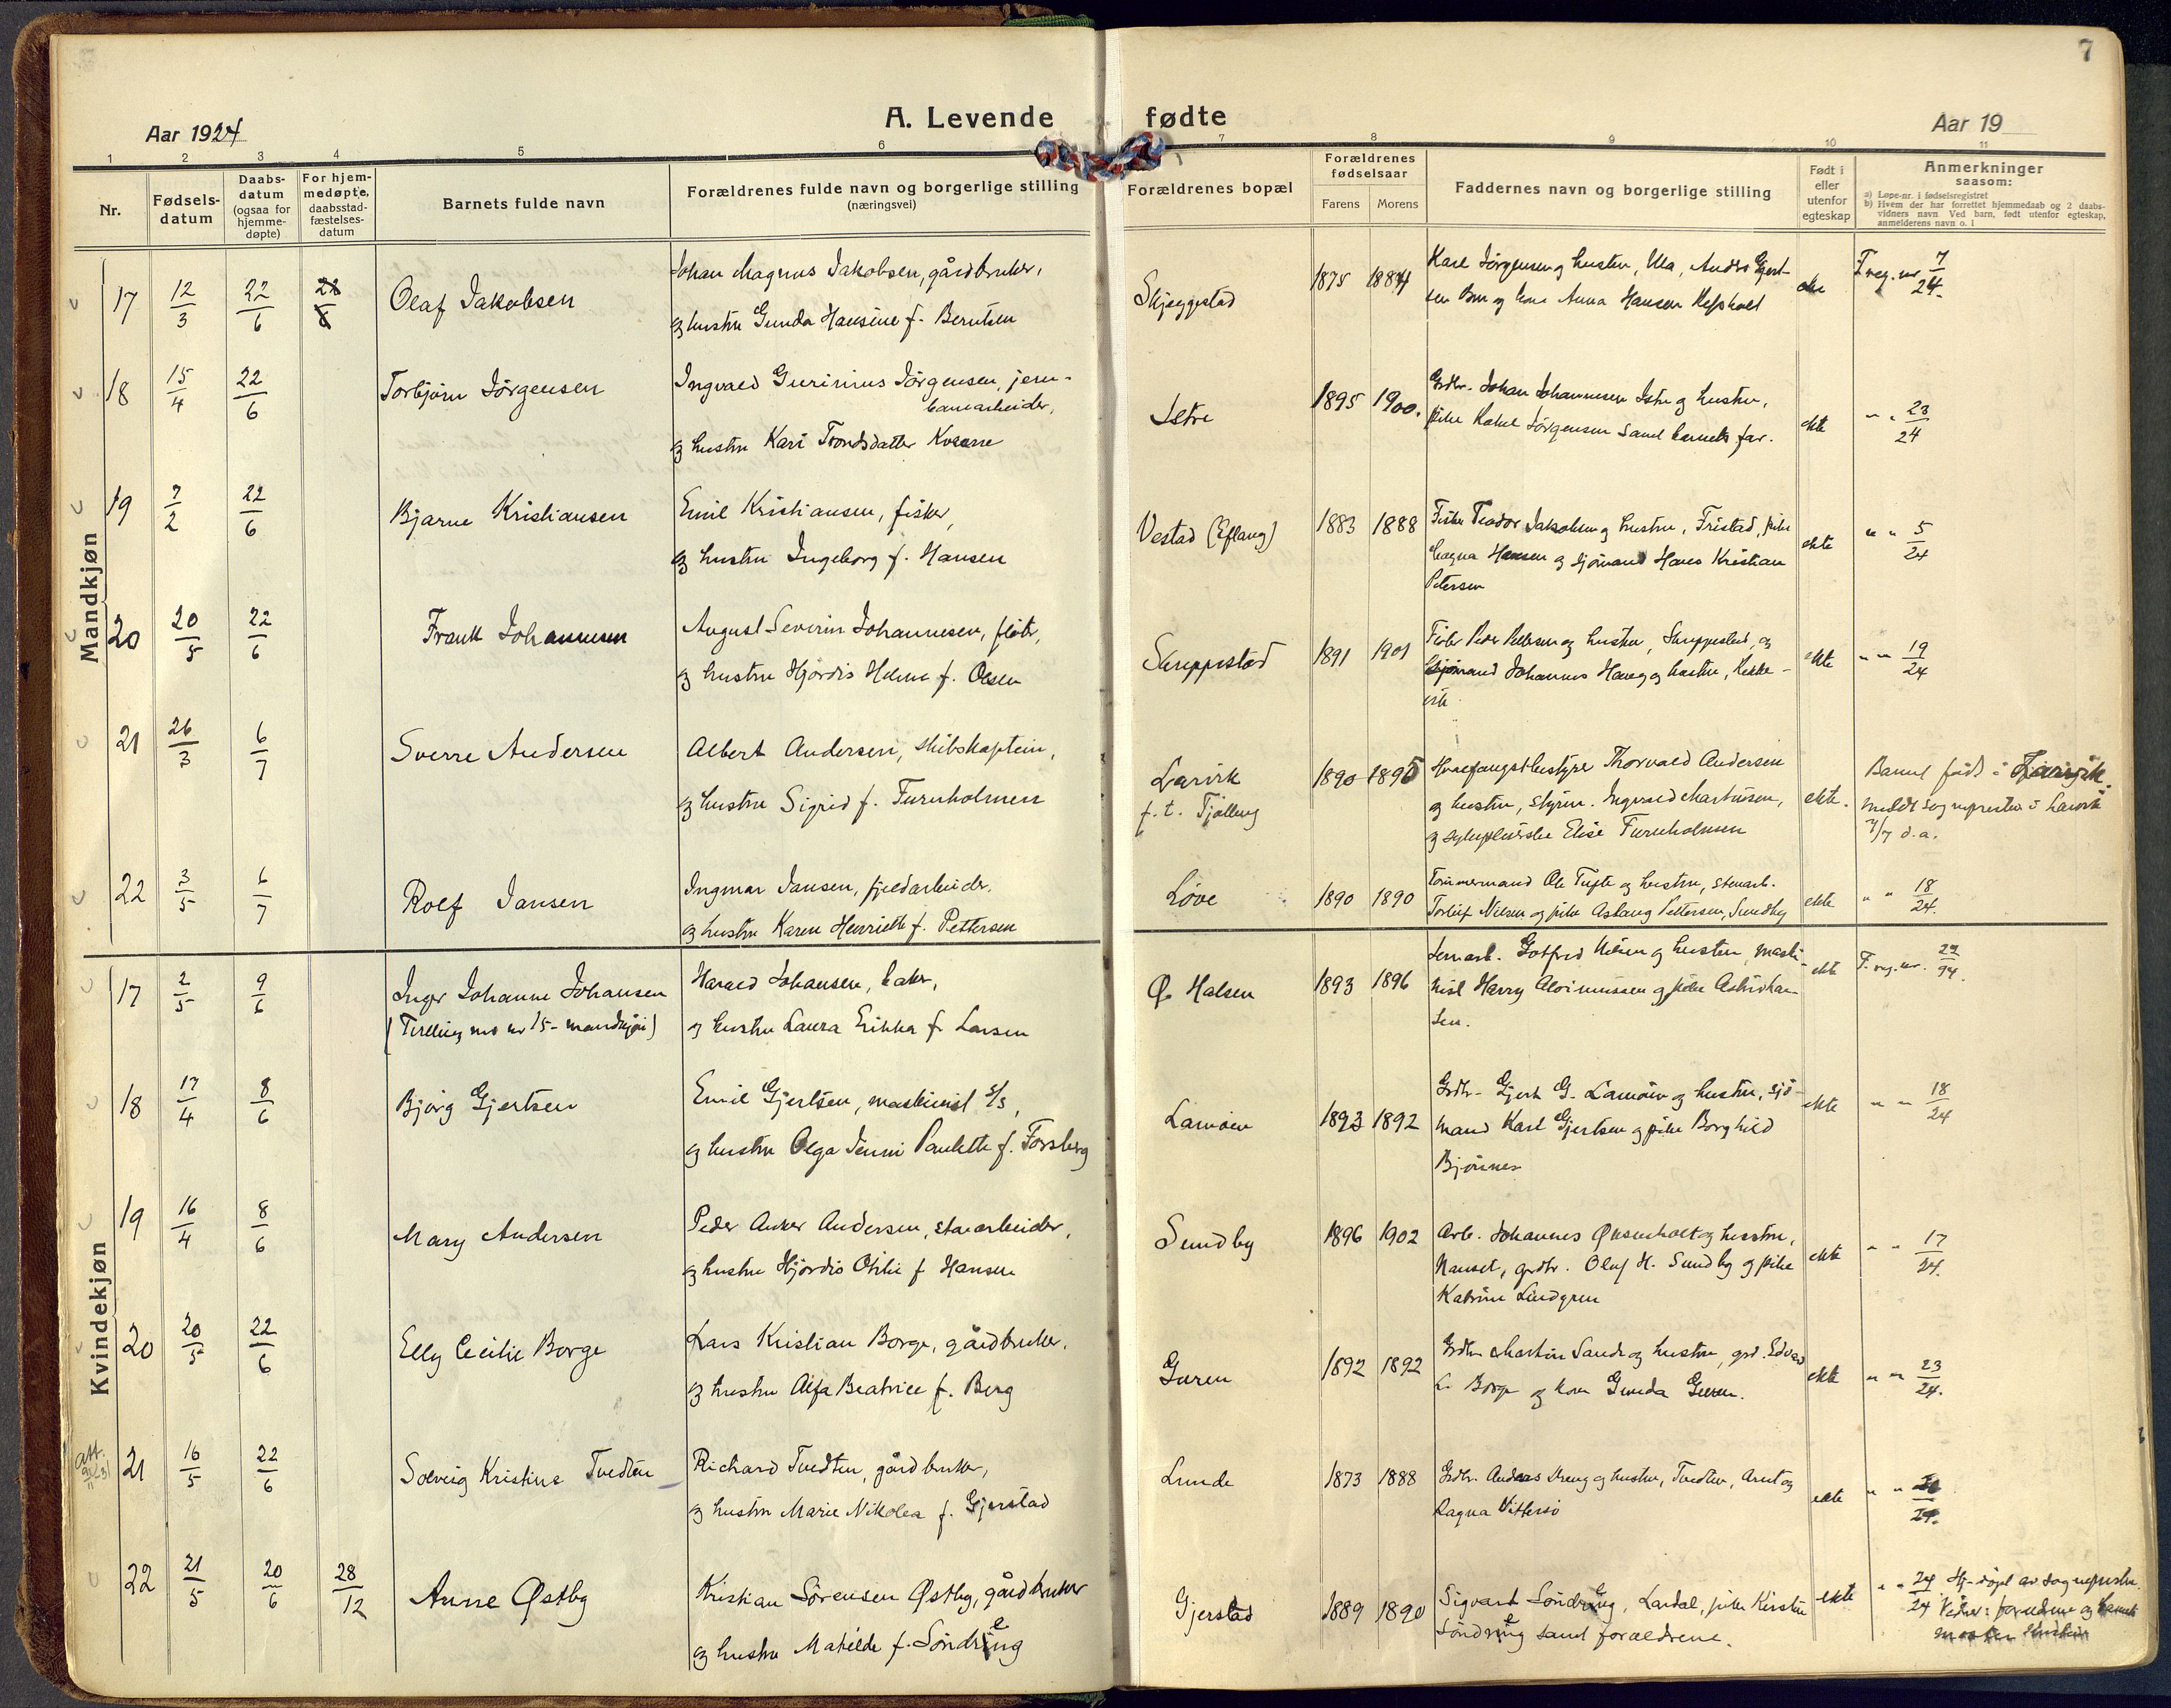 7
Aar 1924
A. Levende fødte
Aar 19
1 2 3 4 5 6 7 8 9 10 11
Nr.
Fødsels-
datum
Daabs-
datum
(ogsaa for
hjemme-
døpte)
For hjem-
medøpte,
daabsstad-
fæstelses-
datum
Barnets fulde navn
Forældrenes fulde navn og borgerlige stilling
(næringsvei)
Forældrenes bopæl
Forældrenes
fødselsaar
Farens Morens
Faddernes navn og borgerlige stilling
Født i
eller
utenfor
egteskap
Anmerkninger
saasom:
a) Løpe-nr. i fødselsregistret
b) Hvem der har forrettet hjemmedaab og 2 daabs-
vidners navn. Ved barn, født utenfor egteskap,
anmelderens navn o. l
Mandkjøn
17 12/3 22/6 Olaf Jakobsen
Johan Magnus Jakobsen, gårdbruker,
og hustru Gunda Hansine f. Berntsen
Skjeggestad 1875 1884
Karl Jørgensen og hustru, Ula, Andrs Gjert-
sen Bru og kone Anna Hansen
ekte F. reg. nr. 7/24.
18 15/4 22/6 Torbjørn Jørgensen
Ingvald Jørgensen, jern-
banearbeider,
og hustru Kari Trondsdatter Kvarne
Istre 1895 1900.
Grdbr. Johan Johannesen Istre og hustru,
pike Jørgensen samt barnets far.
ekte " " 23/24
19 7/2 22/6 Bjarne Kristiansen
Emil Kristiansen, fisker,
og hustru Ingeborg f. Hansen
Vestad (Eftang) 1883 1888
Fisker Teodor Jakobsen og hustru, Fristad, pike
Magna Hansen og sjømand Hans Kristian
Petersen
ekte " " 5/24
20 20/5 22/6 Frank Johannesen
August Severin Johannesen, fisker,
og hustru Hjørdis Helene f. Olsen
Skuppestad 1891 1901
Fisker Peder Pettersen og hustru, Skuppestad, og
sjømand Johannes Haug og hustru,
ekte " " 19/24
21 26/3 6/7 Sverre Andersen
Albert Andersen, skibskaptein,
og hustru Sigrid f. Furuholmen
Larvik
f. t. Tjølling
1890 1895
Hvalfangstbestyrer Thorvald Andersen
og hustru, styrm. Ingvald Martinsen,
og sykepleierske Elise Furuholmen
ekte.
Barnet født i Larvik.
meldt sogneprest i Larvik
7/7 d.a.
22 3/5 6/7 Rolf Jansen
Ingmar Jansen, fjeldarbeider,
og hustru Karen Henriette f. Pettersen
Løve 1890 1890
Tømmermand Ole Tufte og hustru, stenarb.
Torleif Nilsen og pike Aslaug Pettersen, Sundby
ekte " " 18/24.
Kvindekjøn
17 2/5 9/6 Inger Johanne Johansen
(Tvilling m. nr 15 - mandkjøn)
Harald Johansen, baker,
og hustru Laura Erikka f. Larsen
Ø. Halsen 1893 1896
Jernarb. Gotfred Nilsen og hustru, maski-
nist Harry og pike
sen.
ekte F. reg. nr.
18 17/4 8/6 Bjørg Gjertsen
Emil Gjertsen, maskinist s/s,
og hustru Olga Jenni Paulette f. Forsberg
Lamøen 1893 1892
Grdbr. Gjert G. Lamøen og hustru, sjø-
mand Karl Gjertsen og pike Borghild
Bjønnes
ekte " " 18/24
19 16/4 8/6 Mary Andersen
Peder Anker Andersen, stenarbeider,
og hustru Hjørdis Otilie f. Hansen
Sundby 1896 1902
Arb. Johannes Øksenholt og hustru,
Nanset, grdbr. Oluf H. Sundby og pike
Katrine Lindgren
ekte " " 17/24.
20 20/5 22/6 Elly Cecilie Borge
Lars Kristian Borge, gårdbruker,
og hustru Alfa Beatrice f. Berg
Guren 1892 1892
Grdbr. Martin Sande og hustru, grd. Edvard
L. Borge og kone Gunda Guren.
ekte " " 23/24.
21 16/5 22/6 Solveig Kristine Tvedten
Richard Tvedten, gårdbruker,
og hustru Marie Nikolea f. Gjerstad
Lunde 1873 1888
Grdbr. Andreas Vreng og hustru, Tvedten, Arnt og
Ragna Vittersø
ekte " "
22 21/5 20/6 28/12 Anne Østby
Kristian Sørensen Østby, gårdbruker
og hustru Matilde f. Søndreng
Gjerstad 1889 1890
Sigvart Søndreng, Lardal, pike Kirstine
Søndreng samt forældrene.
ekte " " 24/24 Hj-døpt av sogneprest.
Vidner: forældrene og